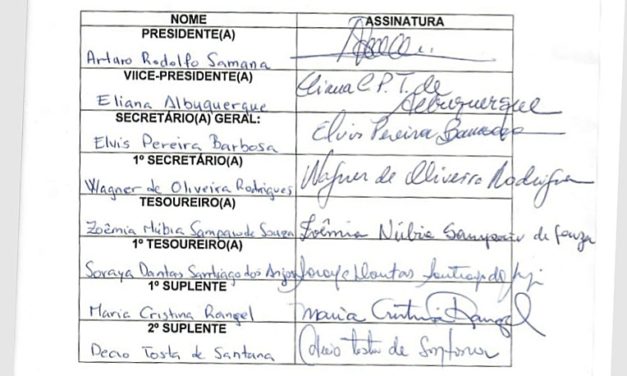 NOME ASSINATURA
PRESIDENTE(A)
Arturo Rodolfo Samana
VIICE-PRESIDENTE(A)
Eliana Albuquerque Eliana C P. T. de Albuquerque
SECRETÁRIO(A) GERAL:
Elvis Pereira Barbosa Elvis Pereira Barbosa
1º SECRETÁRIO(A)
Wagner de Oliveira Rodrigues Wagner de Oliveira Rodrigues
TESOUREIRO(A)
Zoêmia Núbia Sampaio de Souza Zoêmia Núbia Sampaio de Souza
1º TESOUREIRO(A)
Soraya Dantas Santiago dos Anjos Soraya Dantas Santiago dos
1º SUPLENTE
Maria Cristina Rangel Maria Cristina Rangel
2º SUPLENTE
Decio Tosta de Santana Décio Tosta de Santana